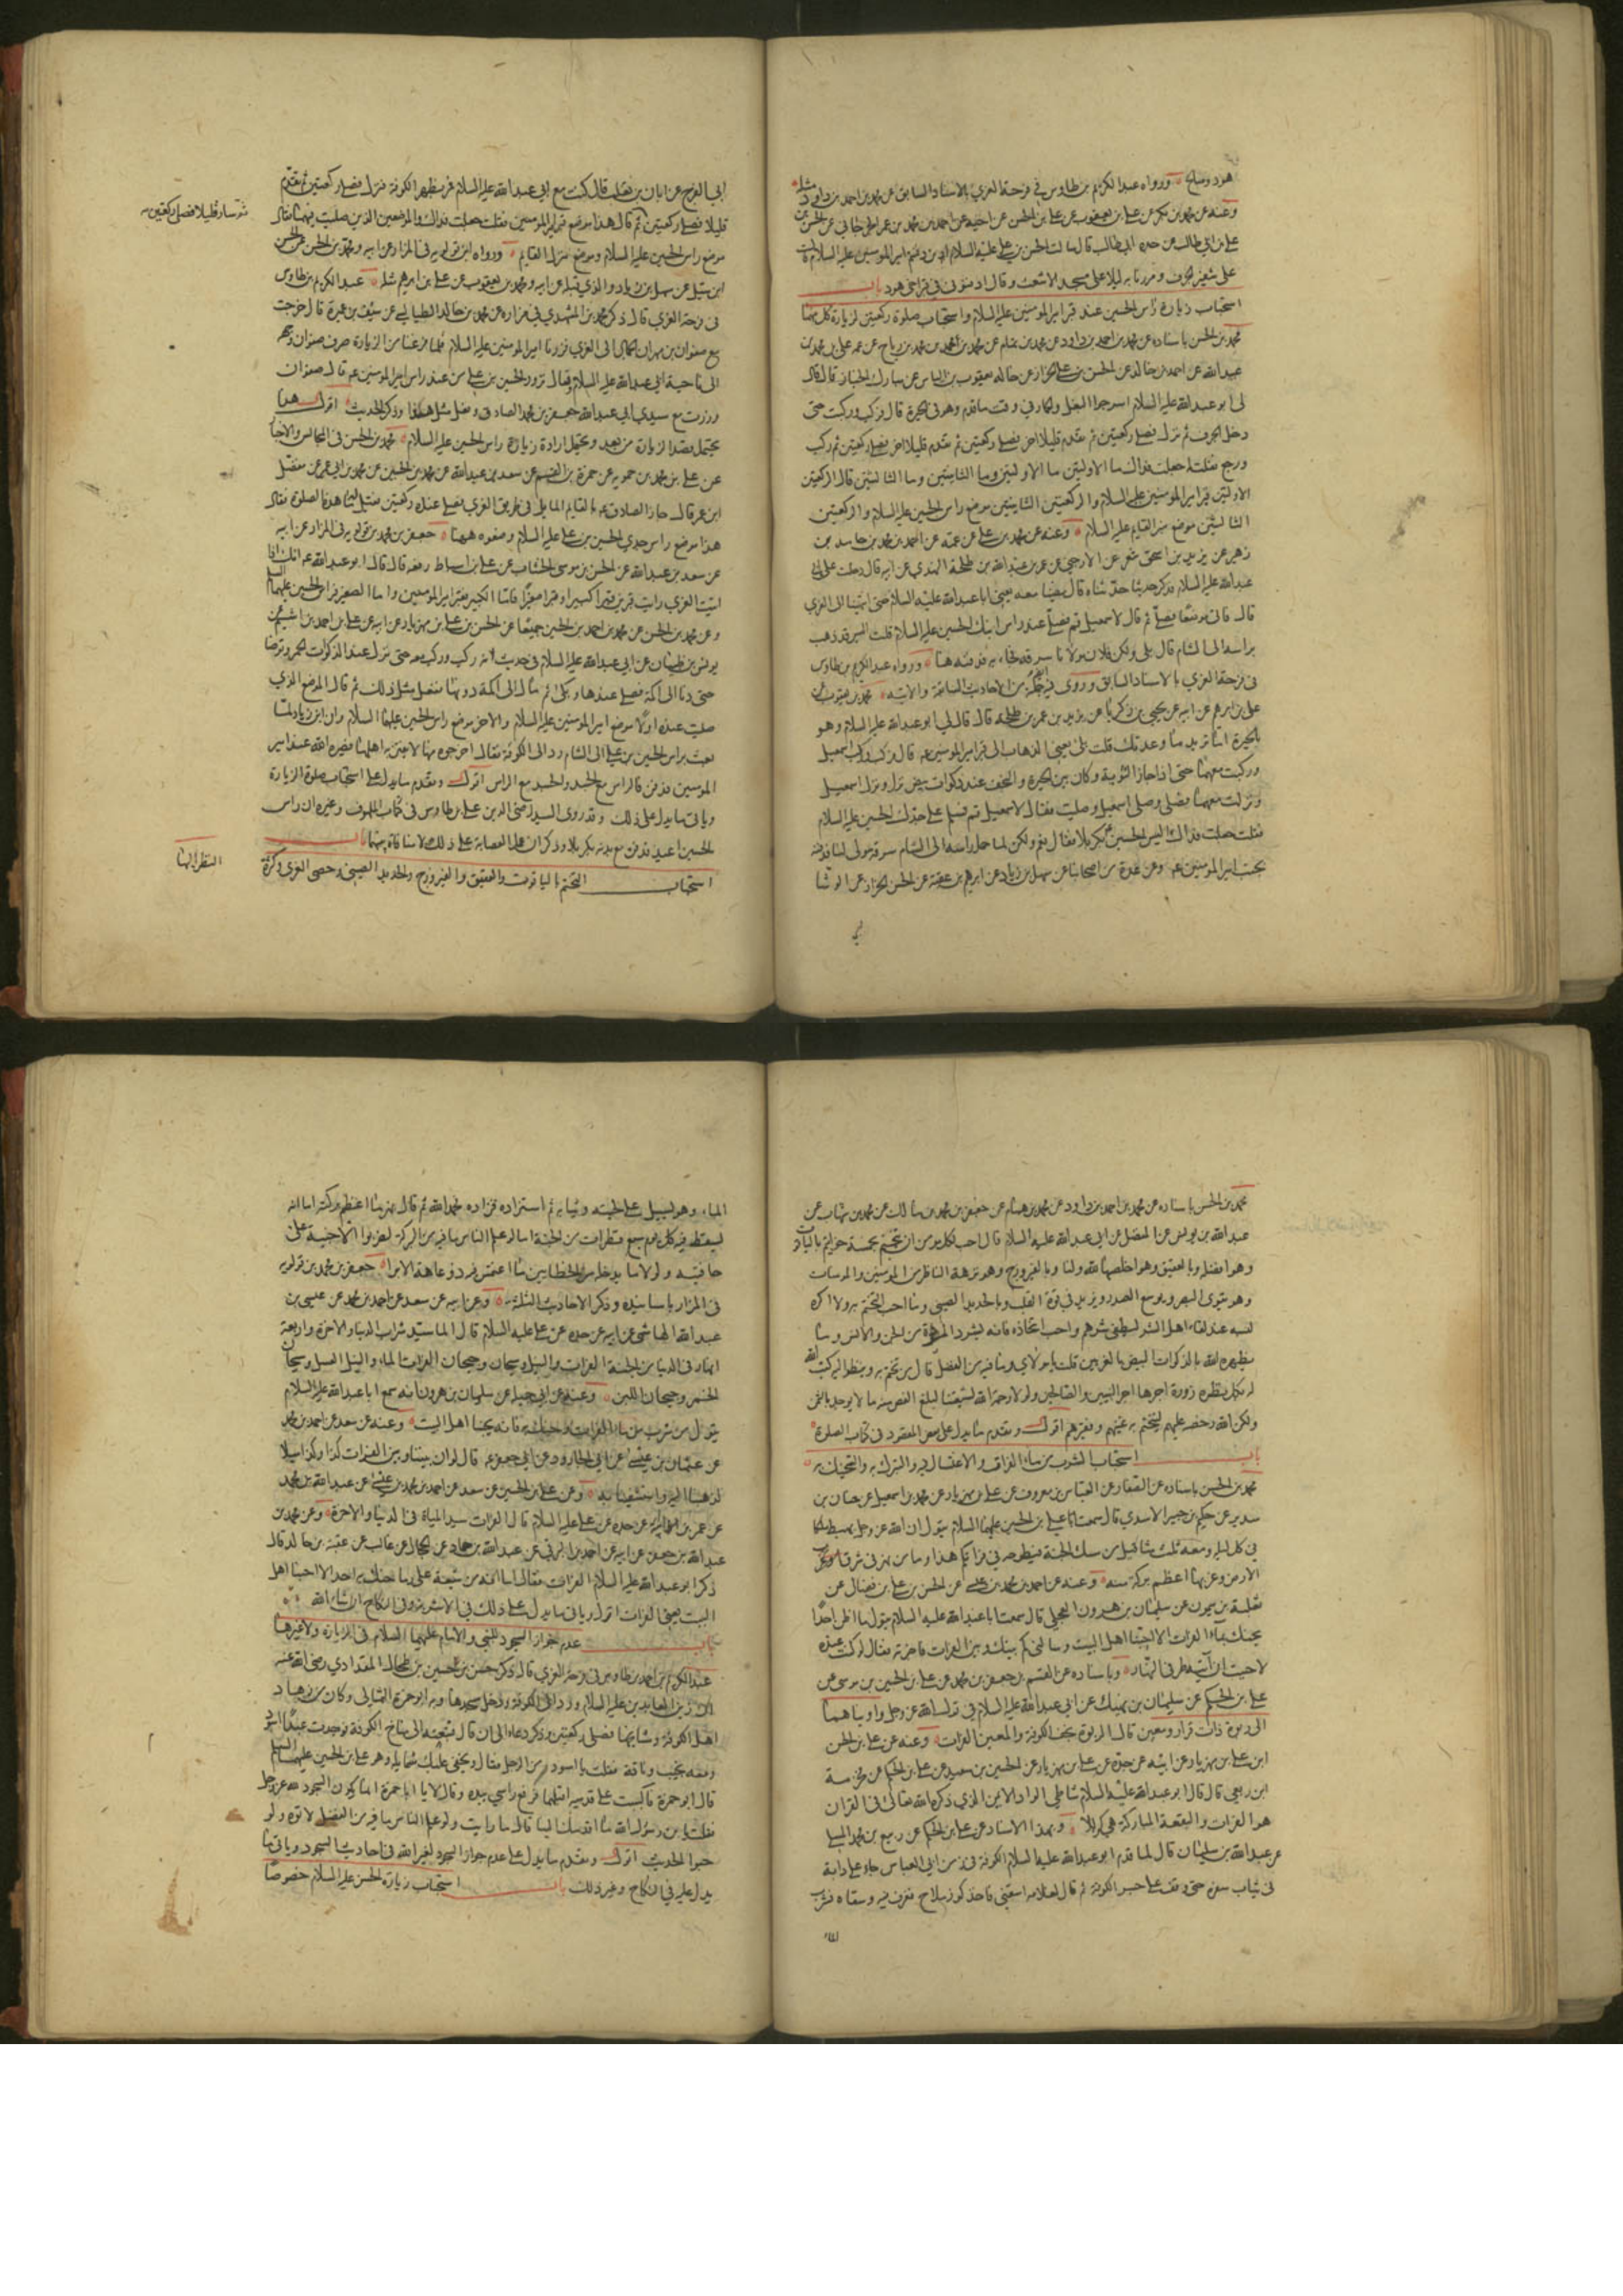 هود وصالح ورواه عبد الكريم بن طاوس في فرحة الغري بالاسناد السابق عن محمد بن احمد بن داود مثله
وعنه عن محمد بن بكر عن علي بن يعقوب عن علي بن الحسن عن اخيه عن احمد بن محمد عن عمر الجرجاني عن الحسن بن
علي بن ابي طالب عن جده ابي طالب قال سالت الحسن بن علي عليه السلام اين دفنتم امير المومنين عليه السلام قال
على شفير الجرف ومررنا به ليلا على مسجد الاشعث وقال ادفنوني في قبر اخي هود باب
استحباب زيارة راس الحسين عند قبر امير المومنين عليه السلام واستحباب صلوة ركعتين لزيارة كل منهما
محمد بن الحسن باسناده عن محمد بن احمد بن داود عن محمد بن همام عن محمد بن محمد عن محمد بن رياح عن عمه علي بن محمد عن
عبيد الله عن احمد بن خالد عن الحسن بن علي الخزاز عن خاله يعقوب بن الياس عن مبارك الخباز قال قال
لي ابو عبد الله عليه السلام اسرجوا البغل والحمار في وقت ما قدم وهو في الحيرة قال فركب وركبت حتى
دخل الجرف ثم نزل فصلى ركعتين ثم تقدم قليلا اخر فصلى ركعتين ثم تقدم قليلا اخر فصلى ركعتين ثم ركب
ورجع فقلت له جعلت فداك ما الاولتين وما الثانيتين وما الثالثتين قال الركعتين
الاولتين قبر امير المومنين عليه السلام والركعتين الثانيتين موضع راس الحسين عليه السلام والركعتين
الثالثتين موضع منبر القايم عليه السلام وعنه عن محمد بن علي عن عمه عن احمد بن محمد بن حامد بن
زهير عن يزيد بن اسحق شعر عن الارجني عن عمر بن عبد الله بن طلحة النهدي عن ابيه قال دخلت على ابي
عبد الله عليه السلام فذكر حديثا حدثناه قال فمضينا معه يعني ابا عبد الله عليه السلام حتى انتهينا الى الغري
قال فاتى موضعا فصلى ثم قال لاسمعيل قم فصل عند راس ابيك الحسين عليه السلام قلت اليس قد ذهب
براسه الى الشام قال بلى ولكن فلان مولانا سرقه فجاء به فدفنه ههنا ورواه عبد الكريم بن طاوس
في فرحة الغري بالاسناد السابق وروى فيه جملة من الاحاديث السابقة والاتية محمد بن يعقوب عن
علي بن ابرهيم عن ابيه عن يحيى بن زكريا عن يزيد بن عمر بن طلحه قال قال لي ابو عبد الله عليه السلام وهو
بالحيرة اما تريد ما وعدتك قلت بلى يعني الذهاب الى قبر امير المومنين ع قال فركب وركب اسمعيل
وركبت معهما حتى اذا جاز الثوية وكان بين الحيرة والنجف عند ذكوات بيض نزل ونزل اسمعيل
ونزلت معهما فصلى وصلى اسمعيل وصليت فقال لاسمعيل قم فسلم على جدك الحسين عليه السلام
فقلت جعلت فداك اليس الحسين بكربلا فقال نعم ولكن لما حمل راسه الى الشام سرقه مولى لنا فدفنه
بجنب امير المومنين ع وعن عدة من اصحابنا عن سهل بن زياد عن ابرهيم بن عقبة عن الحسن الخزاز عن الوشا
ابي الفرج عن ابان بن تغلب قال كنت مع ابي عبد الله عليه السلام فمر بظهر الكوفة فنزل فصلى ركعتين ثم تقدم
ثم سار قليلا فصلى ركعتين
قليلا فصلى ركعتين ثم قال هذا موضع قبر امير المومنين فقلت جعلت فداك والموضعين الذين صليت فيهما فقال
موضع راس الحسين عليه السلام وموضع منزل القايم ورواه ابن قولويه في المزار عن ابيه ومحمد بن الحسن عن الحسن
ابن متيل عن سهل بن زياد والذي قبله عن ابيه ومحمد بن يعقوب عن علي بن ابرهيم مثله عبد الكريم بن طاوس
في فرحة الغري قال ذكر محمد بن المشهدي في مزاره عن محمد بن خالد الطيالسي عن سيف بن عميرة قال خرجت
مع صفوان بن مهران الجمال الى الغري فزرنا امير المومنين عليه السلام فلما فرغنا من الزيارة صرف صفوان وجهه
الى ناحية ابي عبد الله عليه السلام وقال تزور الحسين بن علي من عند راس امير المومنين ع قال صفوان
وزرت مع سيدي ابي عبد الله جعفر بن محمد الصادق وفعل مثل هذا وذكر الحديث اقول هذا
يحتمل قصد الزيارة من بعيد ويحتمل ارادة زيارة راس الحسين عليه السلام محمد بن الحسن في المجالس والاخبار
عن علي بن محمد بن حمويه عن حمزة بن القسم عن سعد بن عبد الله عن محمد بن الحسين عن محمد بن ابي عمير عن مفضل
ابن عمر قال جاز الصادق ع بالقايم المايل في طريق الغري فصلى عنده ركعتين فقيل له ما هذه الصلوة فقال
هذا موضع راس جدي الحسين بن علي عليه السلام وضعوه ههنا جعفر بن محمد بن قولويه في المزار عن ابيه
عن سعد بن عبد الله عن الحسن بن موسى الخشاب عن علي بن اسباط رفعه قال قال ابو عبد الله ع انك اذا
اتيت الغري رايت قبرين قبرا كبيرا وقبرا صغيرا فاما الكبير فقبر امير المومنين واما الصغير فراس الحسين عليهما السلم
وعن محمد بن الحسن عن محمد بن احمد بن الحسين جميعا عن الحسن بن علي بن مهزيار عن ابيه عن علي بن احمد بن اشيم عن
يونس بن ظبيان عن ابي عبد الله عليه السلام في حديث انه ركب وركبت معه حتى نزل عند الذكوات الحمر وتوضا
حتى دنا الى اكمة فصلى عندها وبكى ثم مال الى اكمة دونها ففعل مثل ذلك ثم قال الموضع الذي
صليت عنده اولا موضع امير المومنين عليه السلام والاخر موضع راس الحسين عليه السلام وان ابن زياد لما
بعث براس الحسين بن علي الى الشام رد الى الكوفة فقال اخرجوه منها لا يفتن به اهلها فصيره الله عند امير
المومنين فدفن فالراس مع الجسد والجسد مع الراس اقول وتقدم ما يدل على استحباب صلوة الزيارة
وياتي ما يدل على ذلك وقد روى السيد رضي الدين علي بن طاوس في كتاب الملهوف وغيره ان راس
الحسين اعيد فدفن مع بدنه بكربلا وذكر ان عمل العصابة على ذلك ولا منافاة بينهما باب
النظر اليها
استحباب التختم بالياقوت والعقيق والفيروزج والحديد الصيني وحصى الغري وكثرة
محمد بن الحسن باسناده عن محمد بن احمد بن داود عن محمد بن همام عن جعفر بن محمد بن مالك عن محمد بن شهاب عن
عبد الله بن يونس عن المفضل عن ابي عبد الله عليه السلام قال احب لكل مومن ان يتختم بخمسة خواتيم بالياقوت
وهو افضلها وبالعقيق وهو اخلصها لله ولنا وبالفيروزج وهو نزهة الناظر من المومنين والمومنات
وهو يقوي البصر ويوسع الصدر ويزيد في قوة القلب وبالحديد الصيني وما احب التختم به ولا اكره
لبسه عند لقاء اهل الشر ليطفي شرهم واحب اتخاذه فانه يشرد المردة من الجن والانس وما
يظهره الله بالذكوات البيض بالغريين قلت يا مولاي وما فيه من الفضل قال من تختم به ونظر اليه كتب الله
له بكل نظرة زورة اجرها اجر النبيين والصالحين ولولا رحمة الله لشيعتنا لبلغ الفص منه ما لا يوجد بالثمن
ولكن الله رخصه عليهم ليتختم به غنيهم وفقيرهم اقول وتقدم ما يدل على بعض المقصود في كتاب الصلوة
باب استحباب الشرب من ماء الفرات والاغتسال فيه والتبرك به والتحنيك به
محمد بن الحسن باسناده عن الصفار عن العباس بن معروف عن علي بن مهزيار عن محمد بن اسمعيل عن حنان بن
سدير عن حكيم بن جبير الاسدي قال سمعت علي بن الحسين عليهما السلام يقول ان الله عز وجل يهبط ملكا
في كل ليلة ومعه ثلث مثاقيل من مسك الجنة فيطرحه في فراتكم هذا وما من نهر في شرق
الارض وغربها اعظم بركة منه وعنه عن احمد بن محمد بن عيسى عن الحسن بن علي بن فضال عن
ثعلبة بن ميمون عن سليمان بن هرون العجلي قال سمعت ابا عبد الله عليه السلام يقول ما اظن احدا
يحنك بماء الفرات الا احبنا اهل البيت وسالني كم بينك وبين الفرات فاخبرته فقال لو كنت عنده
لاحببت ان آتيه طرفي النهار وباسناده عن القسم بن جعفر بن محمد عن علي بن الحسين بن موسى عن
علي بن الحكم عن سليمان بن نهيك عن ابي عبد الله عليه السلام في قول الله عز وجل واويناهما
الى ربوة ذات قرار ومعين قال الربوة نجف الكوفة والمعين الفرات وعنه عن علي بن الحسن
ابن علي بن مهزيار عن ابيه عن جده عن علي بن مهزيار عن الحسين بن سعيد عن علي بن الحكم عن مخرمة
ابن ربعي قال قال ابو عبد الله عليه السلام شاطي الواد الايمن الذي ذكره الله تعالى في القران
هو الفرات والبقعة المباركة هي كربلا وبهذا الاسناد عن علي بن الحكم عن ربيع بن محمد المسلي
عن عبد الله بن سليمان قال لما قدم ابو عبد الله عليه السلام الكوفة في زمن ابي العباس جاء على دابة
في ثياب سفره حتى وقف على جسر الكوفة ثم قال لغلامه اسقني فاخذ كوز ملاح فغرف فيه وسقاه فشرب
الماء
الماء وهو يسيل على لحيته وثيابه ثم استزاده فزاده فحمد الله ثم قال نهر ما اعظم بركته اما انه
ليسقط فيه كل يوم سبع قطرات من الجنة اما لو علم الناس ما فيه من البركة لضربوا الاخبية على
حافتيه ولولا ما يدخله من الخطايين ما اغتمس فيه ذو عاهة الا برا جعفر بن محمد بن قولويه
في المزار باسانيده وذكر الاحاديث الثلثة وعن ابيه عن سعد عن احمد بن محمد عن عيسى بن
عبد الله الهاشمي عن ابيه عن جده عن علي عليه السلام قال الماء سيد شراب الدنيا والاخرة واربعة
انهار في الدنيا من الجنة الفرات والنيل وسيحان وجيحان الفرات الماء والنيل العسل وسيحان
الخمر وجيحان اللبن وعنه عن ابي جميل عن سليمان بن هرون انه سمع ابا عبد الله عليه السلام
يقول من شرب من ماء الفرات وحنك به فانه يحبنا اهل البيت وعنه عن سعد عن احمد بن محمد
عن عثمان بن عيسى عن ابي الجارود عن ابي جعفر ع قال لو ان بيننا وبين الفرات كذا وكذا ميلا
لذهبنا اليه واستشفينا به وعن علي بن الحسين عن سعد عن احمد بن محمد بن عيسى عن عبد الله بن محمد
عن عمر بن عن ابيه عن جده عن علي عليه السلام قال الفرات سيد المياه في الدنيا والاخرة وعن محمد بن
عبد الله بن جعفر عن ابيه عن احمد بن البرقي عن عبد الله بن حماد عن عن غالب عن عقبة بن خالد قال
ذكر ابو عبد الله عليه السلام الفرات فقال اما انه من شيعة علي ما حنك به احد الا احبنا اهل
البيت يعني الفرات اقول وياتي ما يدل على ذلك في الاشربة وفي النكاح ان شاء الله
باب عدم جواز السجود للنبي والامام عليهما السلام في الزيارة ولا غيرها
عبد الكريم بن احمد بن طاوس في فرحة الغري قال ذكر حسن بن الحسين بن طحال المقدادي رضي الله عنه
ان زين العابدين عليه السلام ورد الى الكوفة ودخل مسجدها وبه ابو حمزة الثمالي وكان من زهاد
اهل الكوفة ومشايخها فصلى ركعتين وذكر دعاه الى ان قال فتبعته الى مناخ الكوفة فوجدت عبدا اسود
ومعه نجيب وناقة فقلت يا اسود من الرجل فقال ويخفى عليك شمايله وهو علي بن الحسين عليهما السلم
قال ابو حمزة فاكببت على قدميه اقبلهما فرفع راسي بيده وقال لا يا ابا حمزة انما يكون السجود لله عز وجل
فقلت يا ابن رسول الله ما اقدمك الينا قال ما رايت ولو علم الناس ما فيه من الفضل لاتوه ولو
حبوا الحديث اقول وتقدم ما يدل على عدم جواز السجود لغير الله في احاديث السجود وياتي ما
يدل عليه في النكاح وغير ذلك باب استحباب زيارة الحسين عليه السلام خصوصا